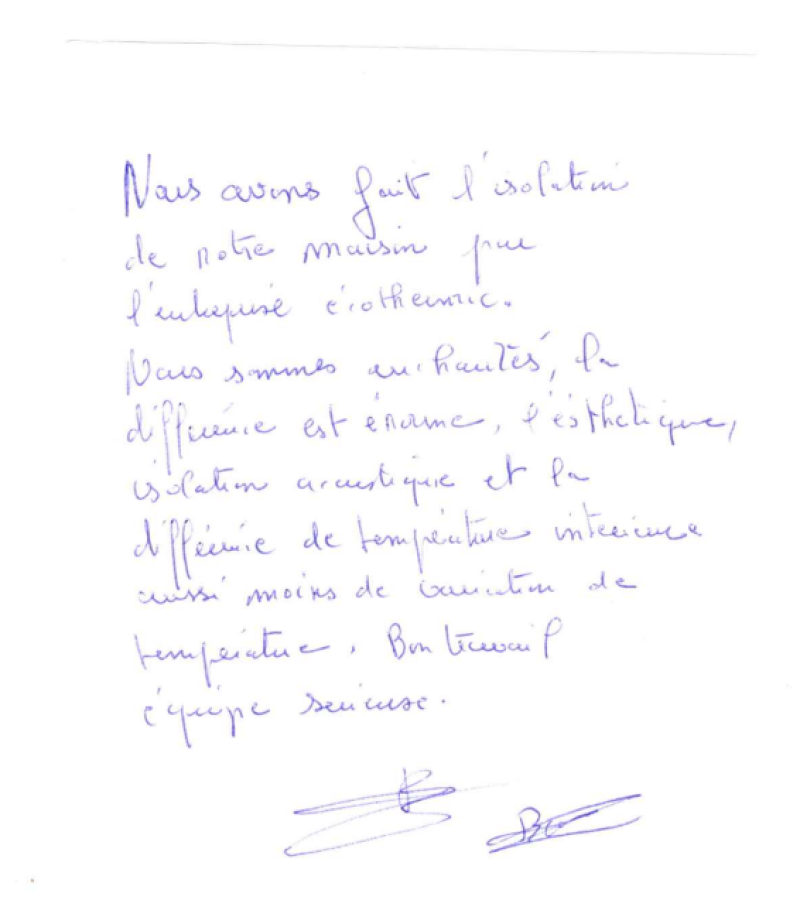 Nous avons fait l'isolation
de notre maison par
l'entreprise
Nous sommes enchantés, la
différence est énorme, l'ésthetique,
isolation acoustique et la
différence de température interieure
aussi moins de variation de
température. Bon travail
équipe serieuse.